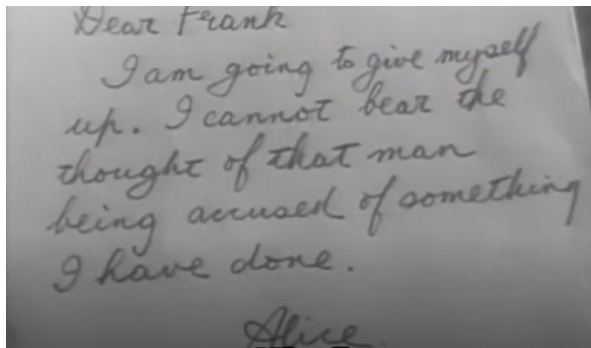 Dear Frank
I am going to give myself
up. I cannot bear the
thought of that man
being accused of something
I have done.
Alice.